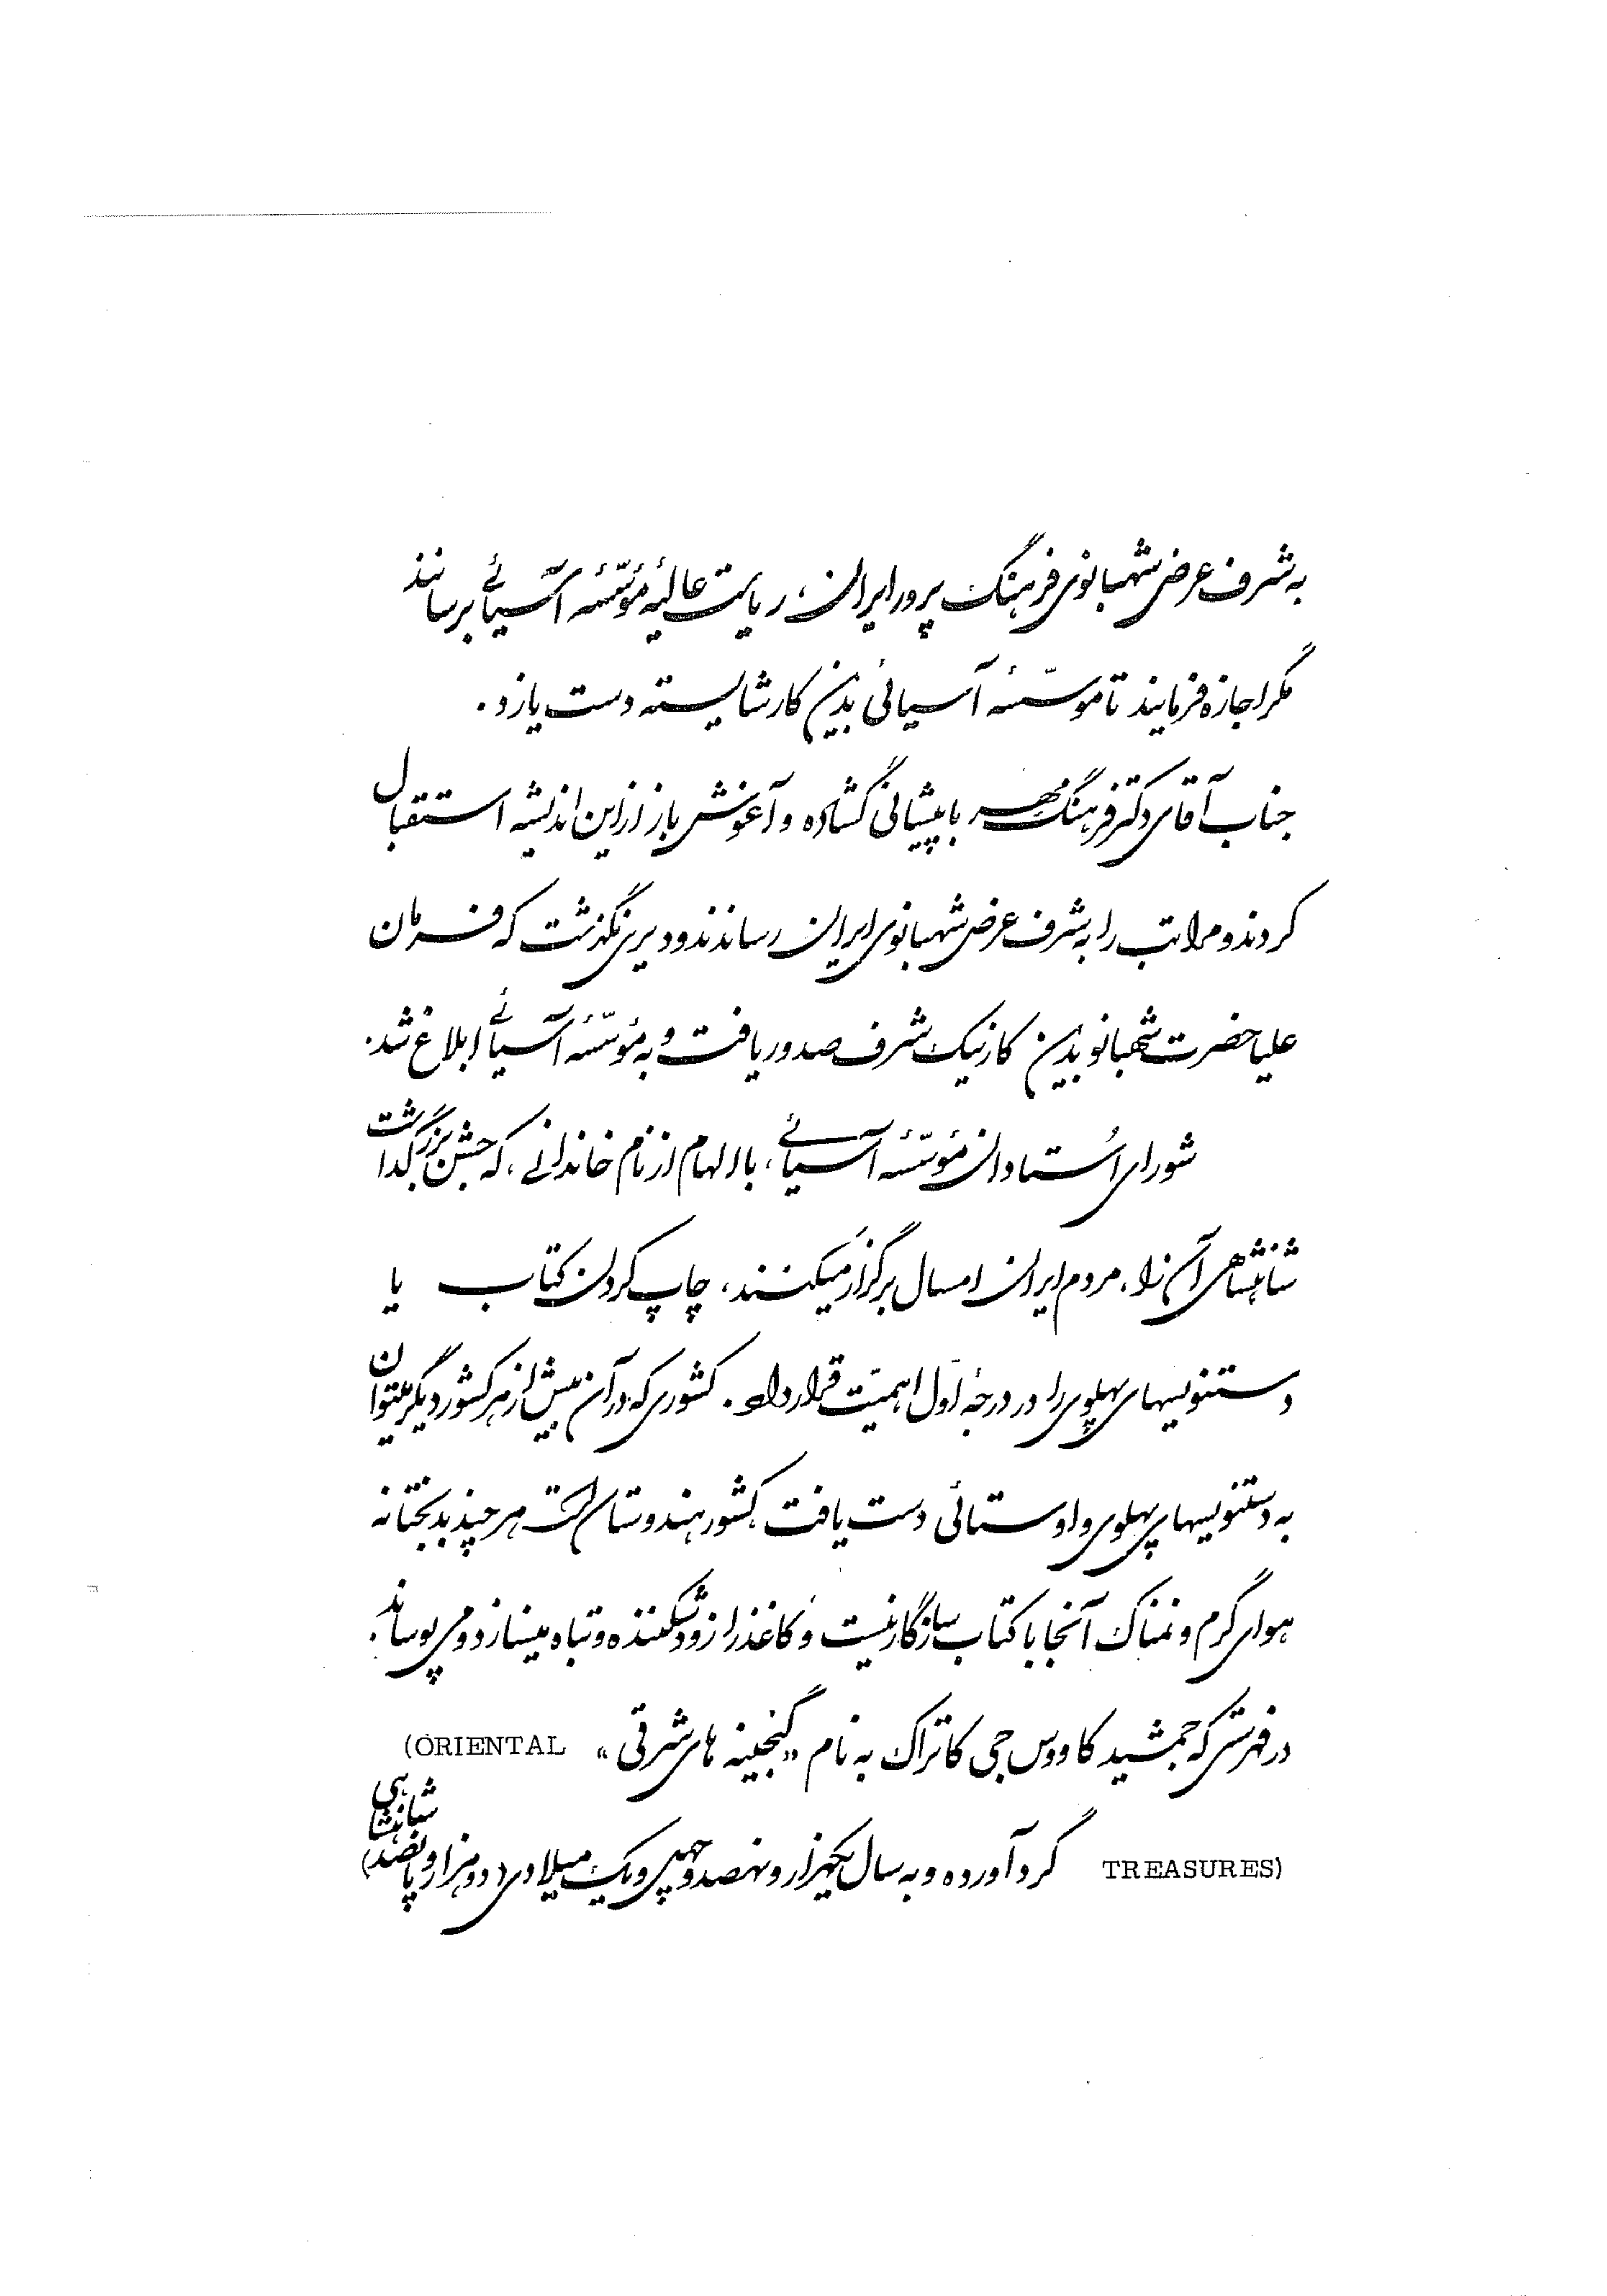 به شرف عرض شهبانوی فرهنگ پرور ایران، ریاست عالیهٔ مؤسّسهٔ آسیائی برسانند
مگر اجازه فرمایند تا موسّسهٔ آسیائی بدین کار شایسته دست یازد.
جناب آقای دکتر فرهنگ مهر با پیشانی گشاده و آغوش باز از این اندیشه استقبال
کردند و مراتب را به شرف عرض شهبانوی ایران رساندند و دیری نگذشت که فرمان
علیاحضرت شهبانو بدین کار نیک شرف صدور یافت و به مؤسّسهٔ آسیائی ابلاغ شد.
شورای اُستادان مؤسّسهٔ آسیائی، با الهام از نام خاندانی، که جشن بزرگداشت
شاهنشاهی آن را، مردم ایران امسال برگزار میکنند، چاپ کردن کتاب یا
دستنویسهای پهلوی را در درجهٔ اوّل اهمیّت قرار داد. کشوری که در آن بیش از هر کشور دیگر میتوان
به دستنویسهای پهلوی و اوستائی دست یافت کشور هندوستان است هر چند بدبختانه
هوای گرم و نمناک آنجا با کتاب سازگار نیست و کاغذ را زود شکننده و تباه میسازد و می پوساند.
در فهرستی که جمشید کاووس جی کاتراک به نام «گنجینه های شرقی» (ORIENTAL
TREASURES) گرد آورده و به سال یکهزار و نهصد و چهل و یک میلادی (دو هزار و پانصد شاهنشاهی)